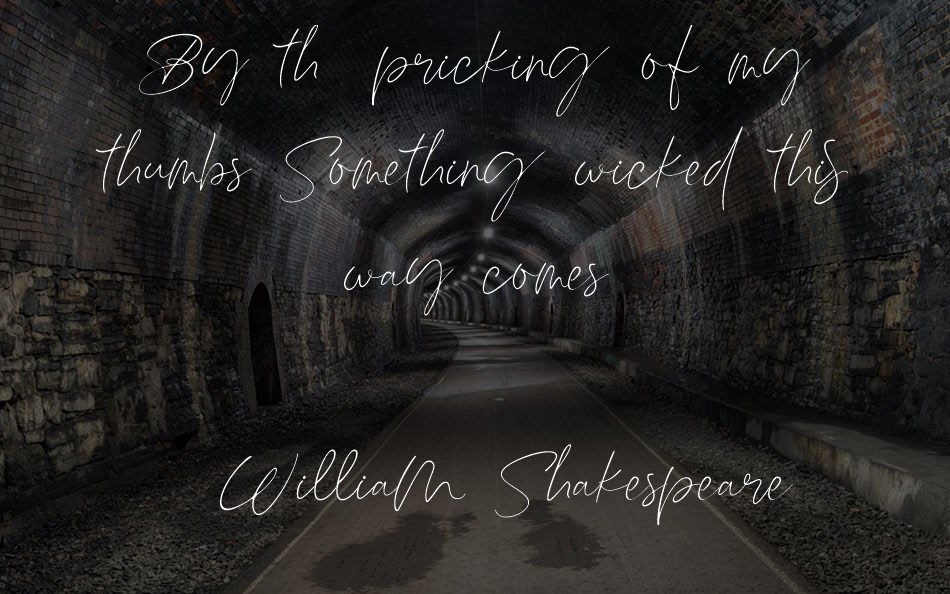 By th pricking of my
thumbs Something wicked this
way comes
William Shakespeare